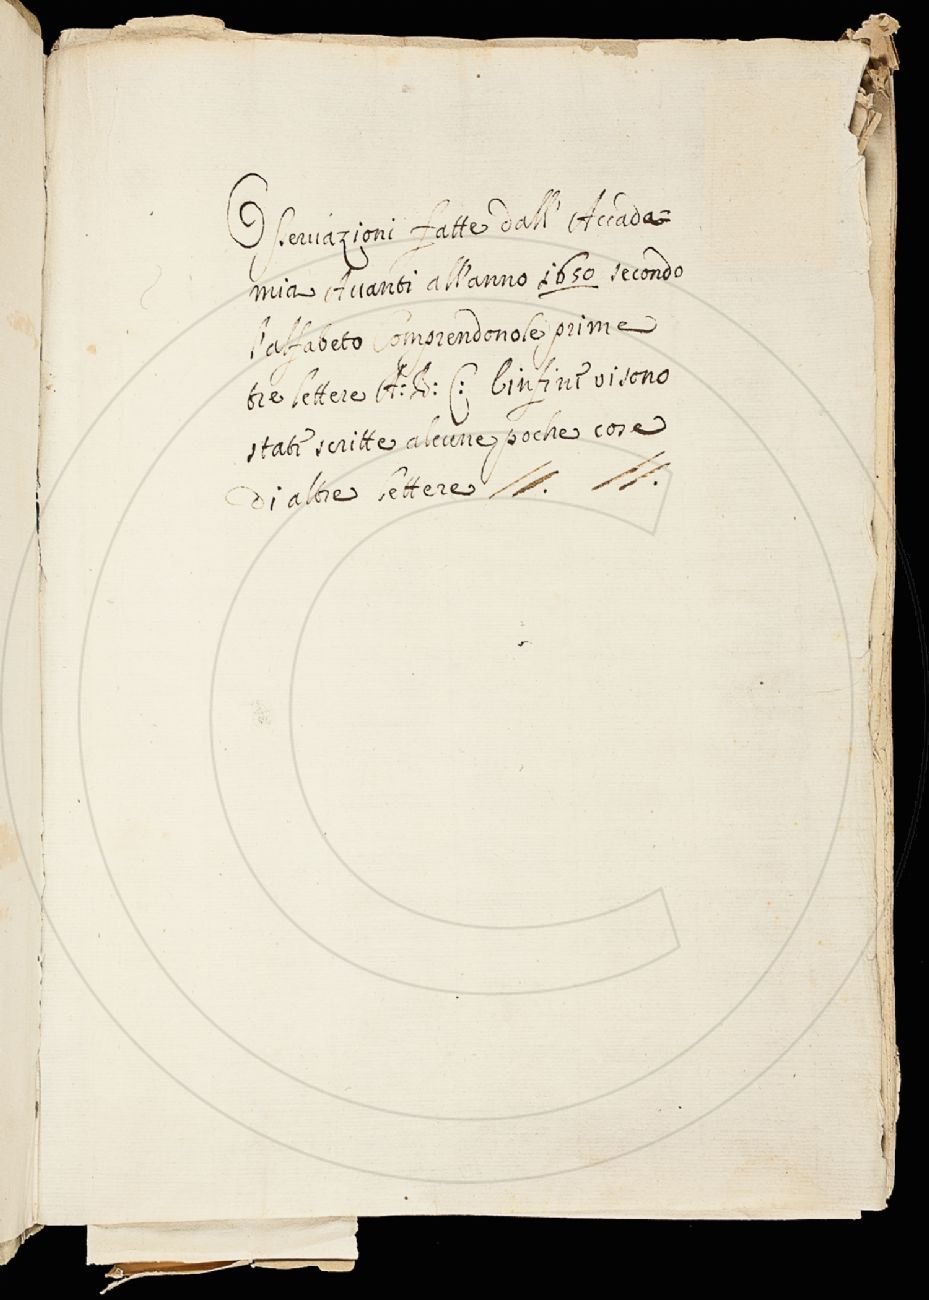 Osseruazioni fatte dall' Accade=
mia Auanti all'anno 1650 secondo
l'alfabeto Comprendono le prime
tre lettere A: B: C: vi sono
stati scritte alcune poche cose
di altre lettere //. //.